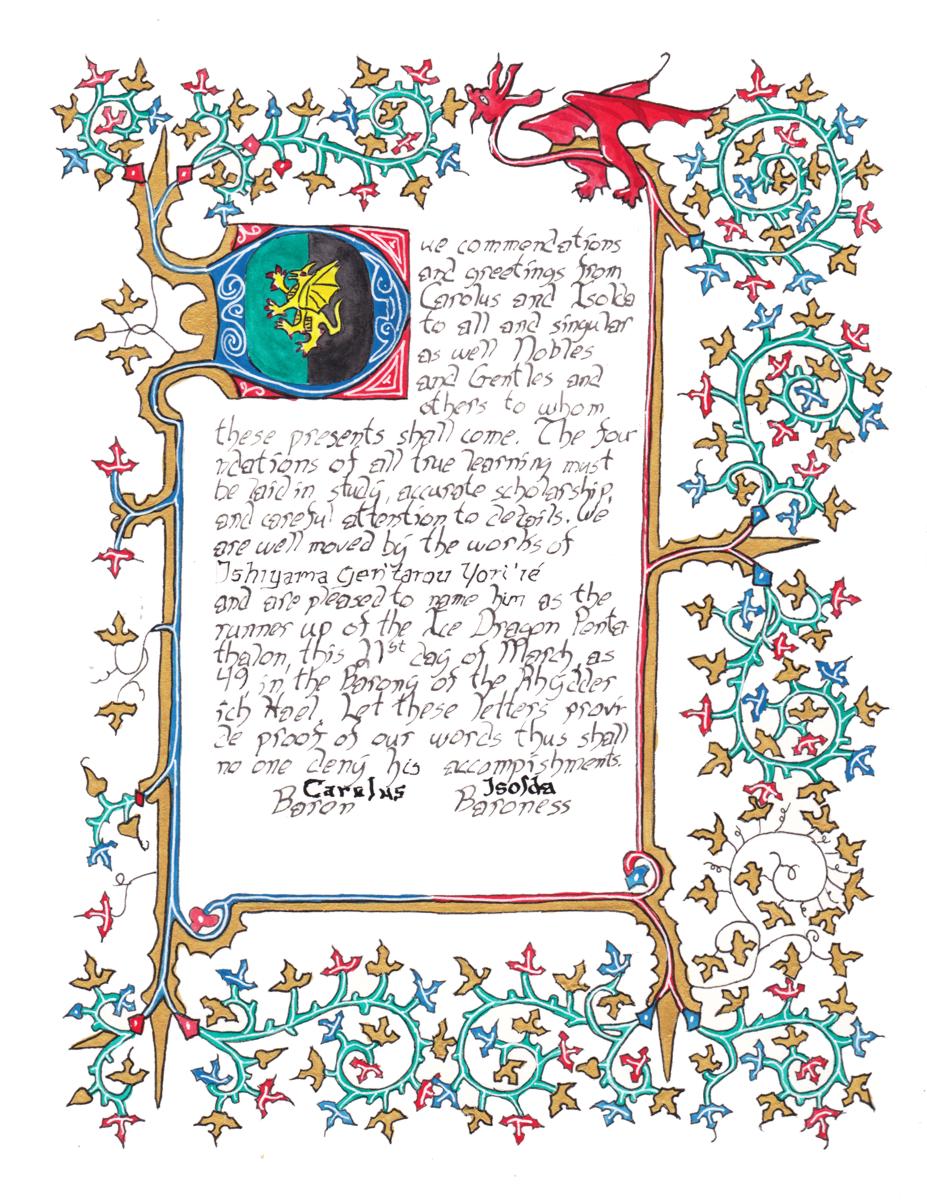 Due commendations
and greetings from
Carolus and Isolda
to all and singular
as well Nobles
and Gentles and
others to whom
these presents shall come. The four
ndations of all true learning must
be laid in study, accurate scholarship,
and careful attention to details. We
are well moved by the works of
Ishiyama Gen'tarou Yori'ie
and are pleased to name him as the
runner up of the Ice Dragon Penta
thalon, this 21st day of March, as
49 in the Barony of the Rhydder
ich Hael. Let these letters provi
de proof of our words thus shall
no one deny his accompishments.
Carolus Isolda
Baron Baroness